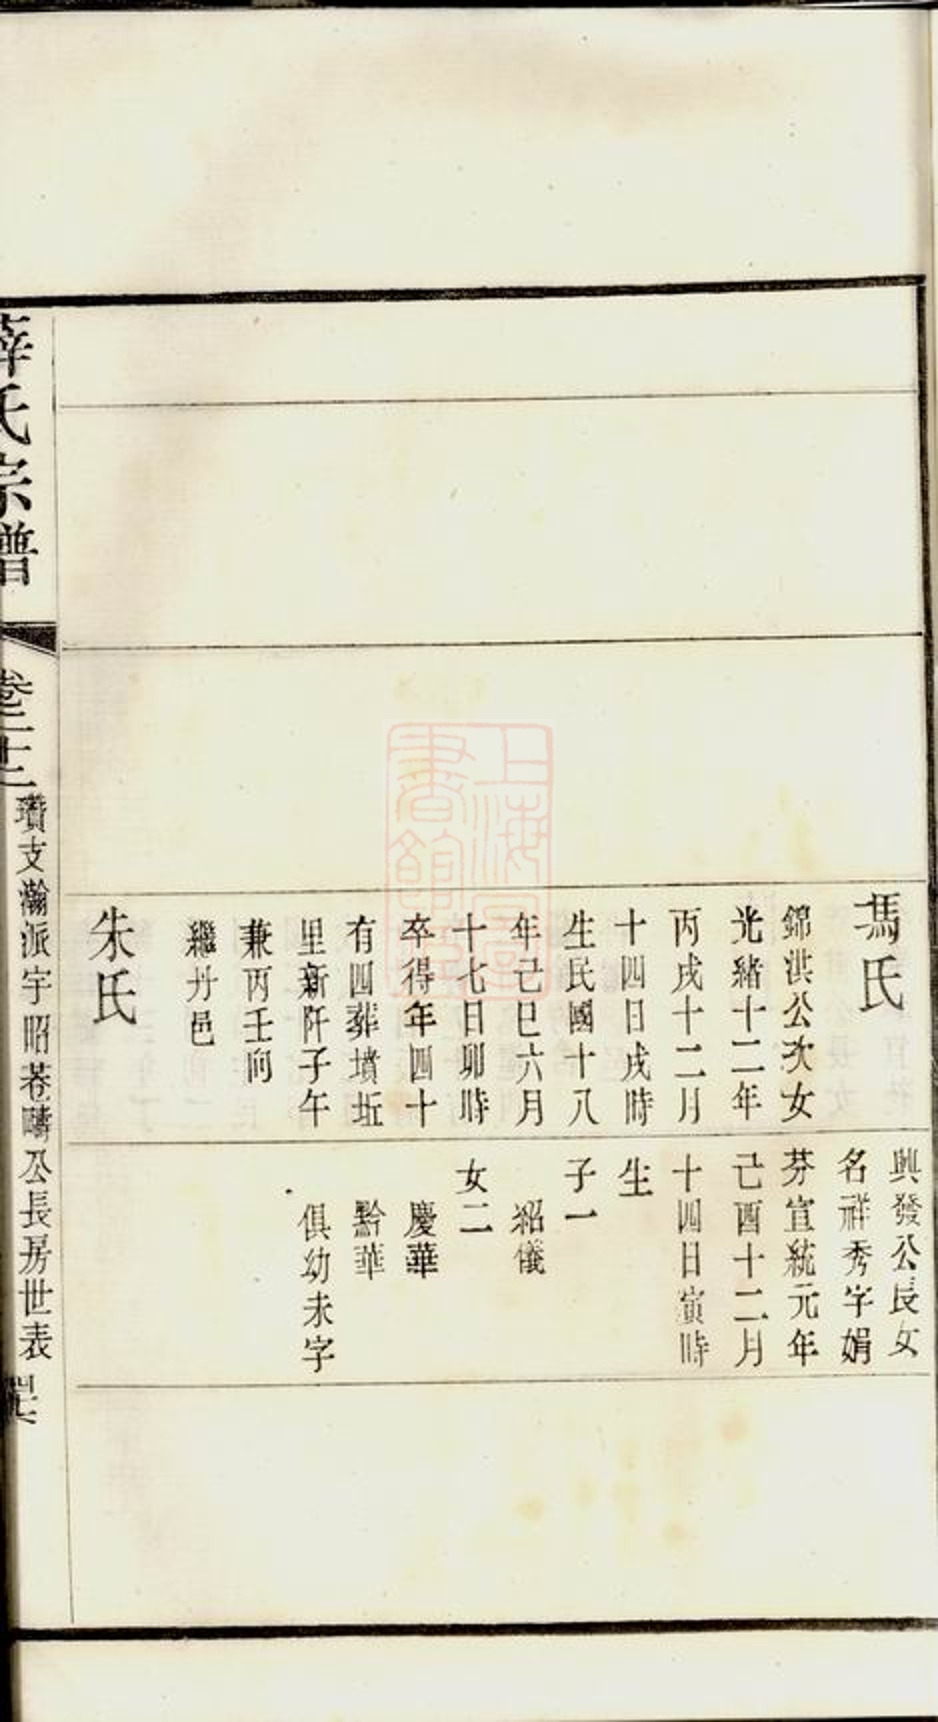 馮氏
錦洪公次女
光緒十二年
丙戌十二月
十四日戌時
生民國十八
年己巳六月
十七日卯時
卒得年四十
有四葬墳坵
里新阡子午
兼丙壬向
繼丹邑
朱氏
興發公長女
名祥秀字娟
芬宣統元年
己酉十二月
十四日寅時
生
子一
紹儀
女二
慶華
黔華
俱幼未字
薛氏宗譜
卷二十二
瓚支瀚派宇昭菴疇公長房世表
上海圖書館藏